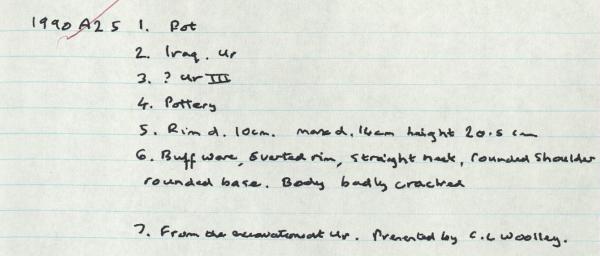 1990 A25 1. Pot
2. Iraq. Ur
3. ? Ur III
4. Pottery
5. Rim d. 10cm. max d. 14cm height 20.5 cm
6. Buff ware, everted rim, straight neck, rounded shoulder
rounded base. Body badly cracked
7. From the excavation at Ur. Presented by C.L Woolley.